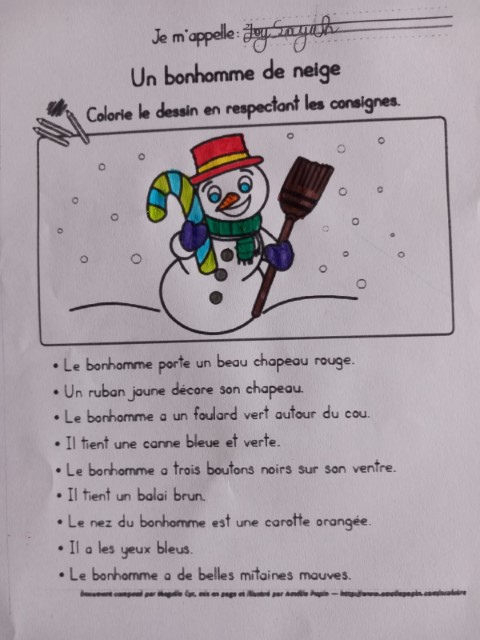 Je m'appelle:
Un bonhomme de neige
Colorie le dessin en respectant les consignes.
• Le bonhomme porte un beau chapeau rouge.
• Un ruban jaune décore son chapeau.
• Le bonhomme a un foulard vert autour du cou.
• Il tient une canne bleue et verte.
• Le bonhomme a trois boutons noirs sur son ventre.
• Il tient un balai brun.
• Le nez du bonhomme est une carotte orangée.
• Il a les yeux bleus.
• Le bonhomme a de belles mitaines mauves.
Document composé par Magalie Cyr, mis en page et illustré par Amélie Pepin —